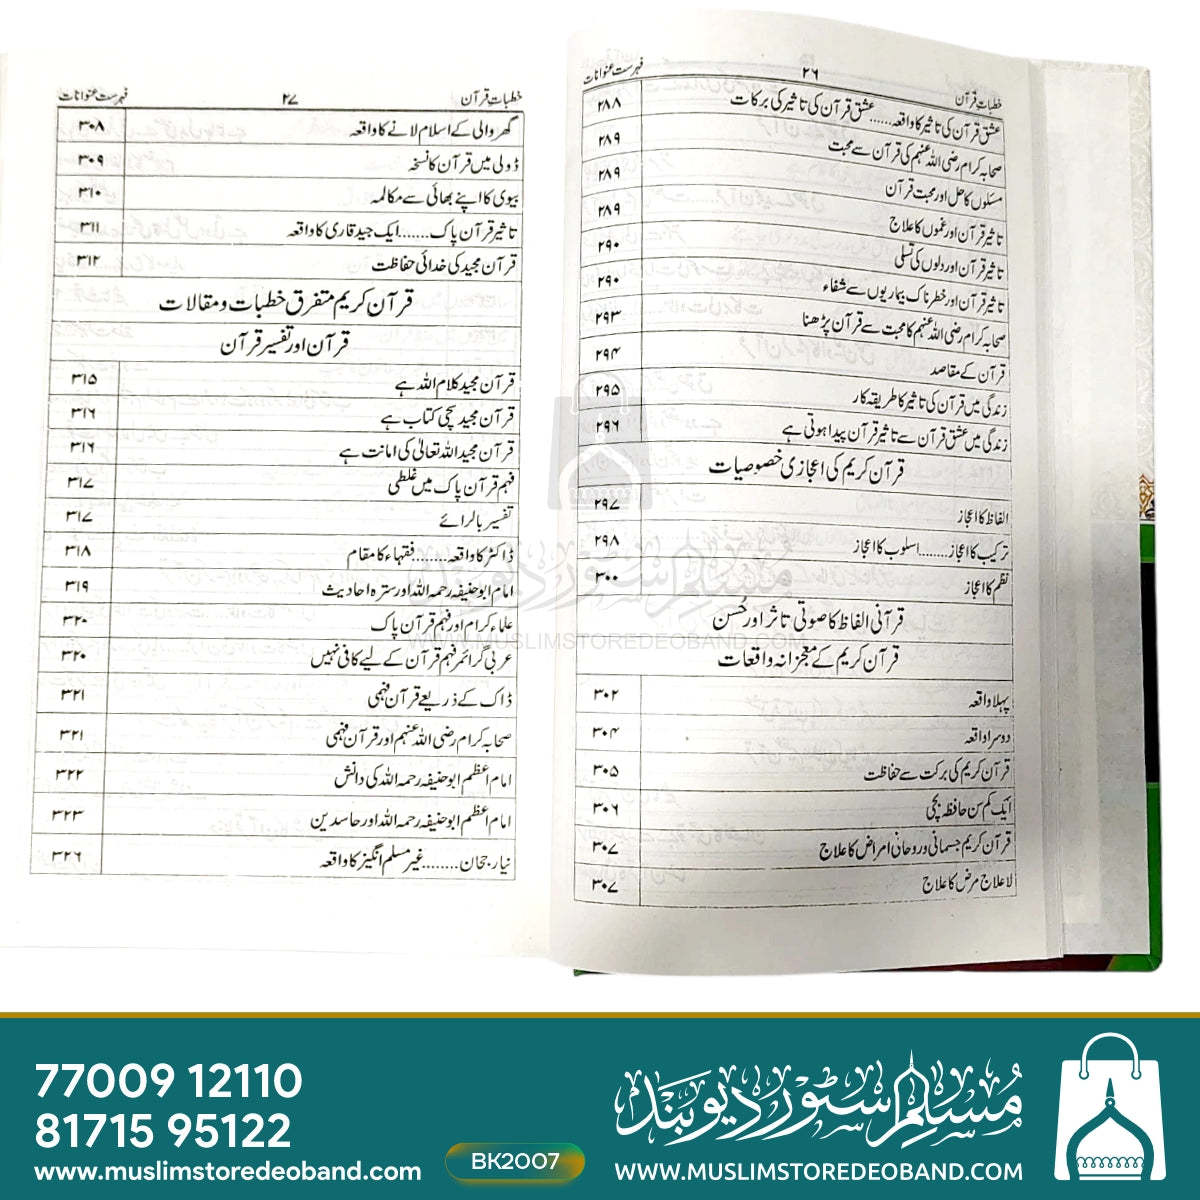 خطبات قرآن ۲۶ فہرست عنوانات
عشق قرآن کی تاثیر کا واقعہ......عشق قرآن کی تاثیر کی برکات ۲۸۸
صحابہ کرام رضی اللہ عنہم کی قرآن سے محبت ۲۸۹
مسئلوں کا حل اور محبت قرآن ۲۸۹
تاثیر قرآن اور غموں کا علاج ۲۸۹
تاثیر قرآن اور دلوں کی تسلی ۲۹۰
تاثیر قرآن اور خطرناک بیماریوں سے شفاء ۲۹۰
صحابہ کرام رضی اللہ عنہم کا محبت سے قرآن پڑھنا ۲۹۳
قرآن کے مقاصد ۲۹۴
زندگی میں قرآن کی تاثیر کا طریقہ کار ۲۹۵
زندگی میں عشق قرآن سے تاثیر قرآن پیدا ہوتی ہے ۲۹۶
قرآن کریم کی اعجازی خصوصیات
الفاظ کا اعجاز ۲۹۷
ترکیب کا اعجاز.......اسلوب کا اعجاز ۲۹۸
نظم کا اعجاز ۳۰۰
قرآنی الفاظ کا صوتی تاثر اور حُسن
قرآن کریم کے معجزانہ واقعات
پہلا واقعہ ۳۰۲
دوسرا واقعہ ۳۰۴
قرآن کریم کی برکت سے حفاظت ۳۰۵
ایک کم سن حافظہ بچی ۳۰۶
قرآن کریم جسمانی و روحانی امراض کا علاج ۳۰۷
لا علاج مرض کا علاج ۳۰۷
خطبات قرآن ۲۷ فہرست عنوانات
گھر والی کے اسلام لانے کا واقعہ ۳۰۸
ڈولی میں قرآن کا نسخہ ۳۰۹
بیوی کا اپنے بھائی سے مکالمہ ۳۱۰
تاثیر قرآن پاک.......ایک جید قاری کا واقعہ ۳۱۱
قرآن مجید کی خدائی حفاظت ۳۱۲
قرآن کریم متفرق خطبات و مقالات
قرآن اور تفسیر قرآن
قرآن مجید کلام اللہ ہے ۳۱۵
قرآن مجید سچی کتاب ہے ۳۱۶
قرآن مجید اللہ تعالیٰ کی امانت ہے ۳۱۶
فہم قرآن پاک میں غلطی ۳۱۷
تفسیر بالرائے ۳۱۷
ڈاکٹر کا واقعہ.......فقہاء کا مقام ۳۱۸
امام ابو حنیفہ رحمہ اللہ اور سترہ احادیث ۳۱۹
علماء کرام اور فہم قرآن پاک ۳۲۰
عربی گرائمر فہم قرآن کے لیے کافی نہیں ۳۲۰
ڈاک کے ذریعے قرآن فہمی ۳۲۱
صحابہ کرام رضی اللہ عنہم اور قرآن فہمی ۳۲۱
امام اعظم ابو حنیفہ رحمہ اللہ کی دانش ۳۲۲
امام اعظم ابو حنیفہ رحمہ اللہ اور حاسدین ۳۲۳
نیا رجحان........غیر مسلم انگریز کا واقعہ ۳۲۶
مسلم سٹور دیوبند
WWW.MUSLIMSTOREDEOBAND.COM
77009 12110
81715 95122
www.muslimstoredeoband.com
BK2007
مُسلم سٹور دیوبند
WWW.MUSLIMSTOREDEOBAND.COM